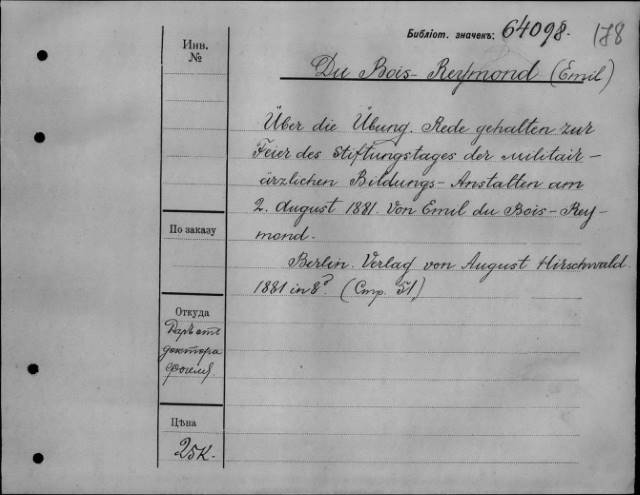 Библіот. значекъ: 64098. 178
Инв. №
Du Bois-Reymond (Emil)
Über die Übung. Rede gehalten zur
Feier des Stiftungstages der Militair-
ärzlichen Bildungs-Anstalten am
2. August 1881. Von Emil du Bois-Rey-
mond.
Berlin. Verlag von August Hirschwald.
1881 in 8º. (Стр. 51.)
По заказу
Откуда
Даръ отъ
доктора
Фогеля.
Цѣна
25к.